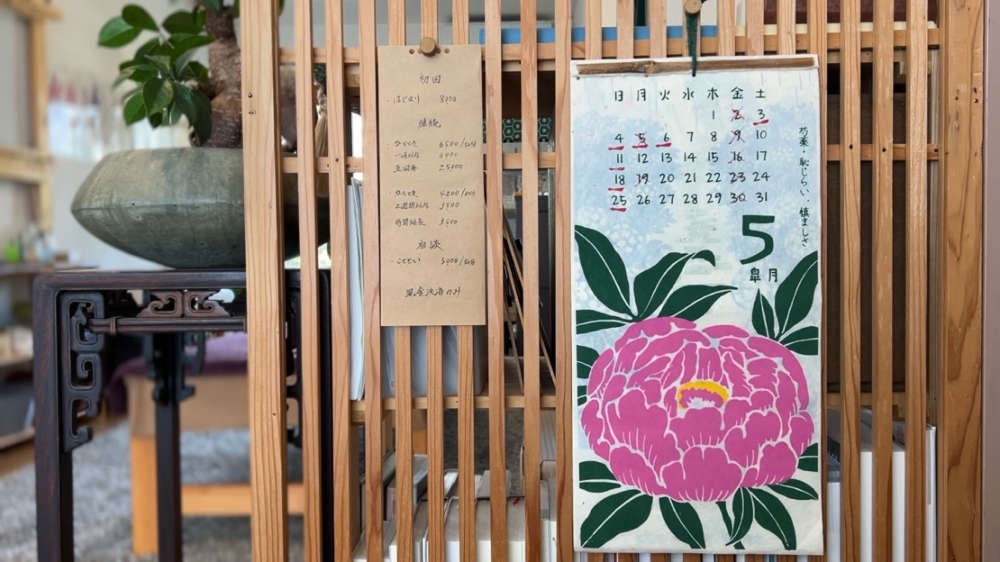 初回
・はじまり 8000
継続
6500/
6000
25000
4200/
3900
・時間延長 3500
5900/
現金決済のみ
日 月 火 水 木 金 土
1 2 3
4 5 6 7 8 9 10
11 12 13 14 15 16 17
18 19 20 21 22 23 24
25 26 27 28 29 30 31
5
皐月
芍薬・恥じらい、慎ましさ